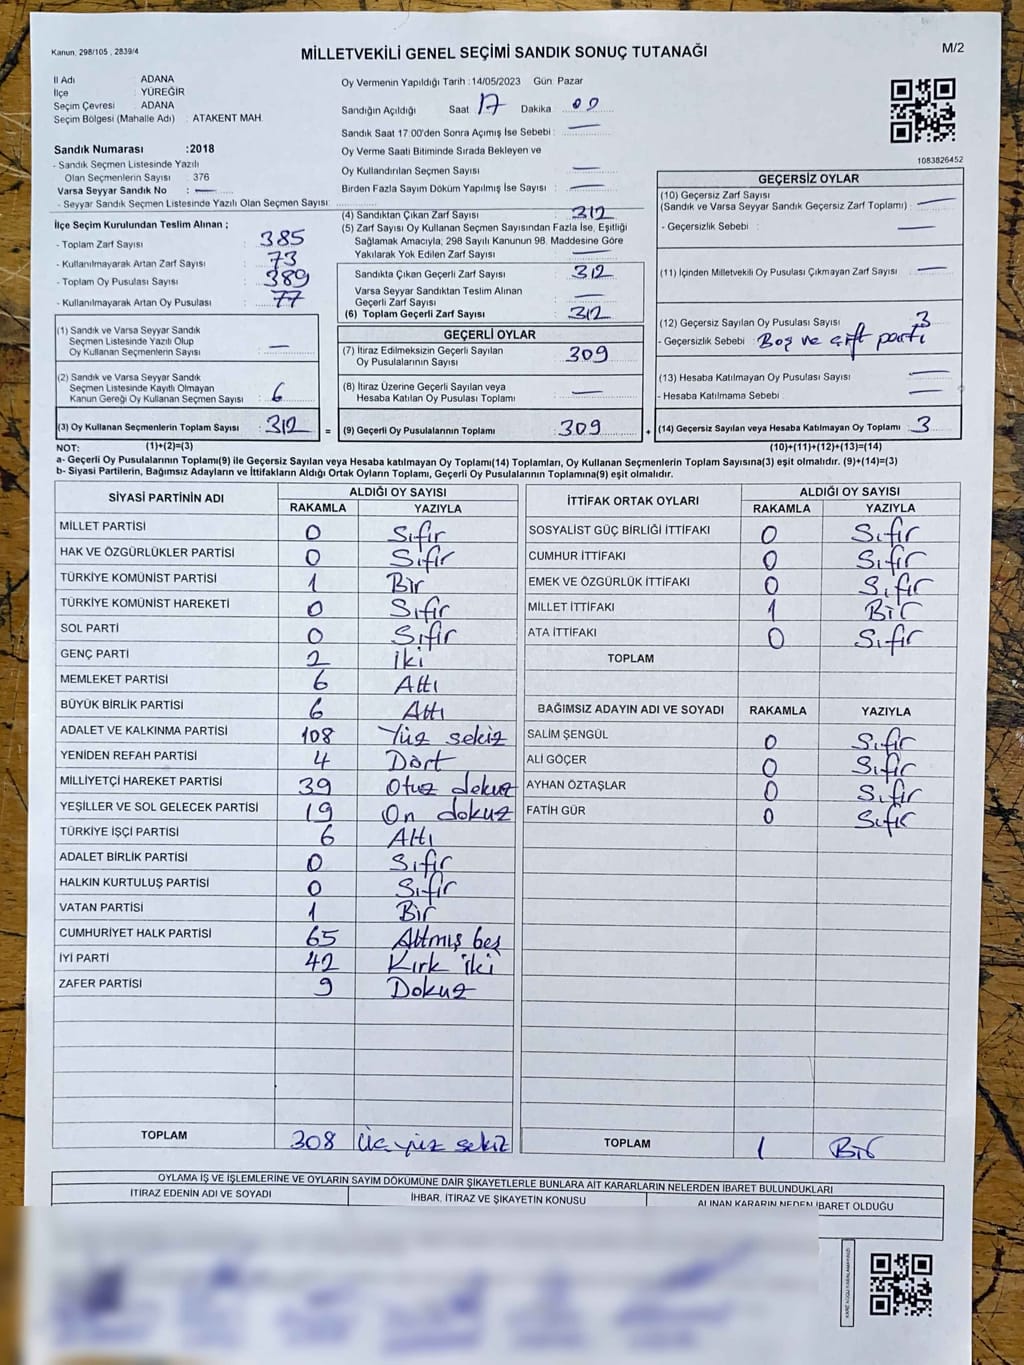 Kanun, 298/105 , 2839/4
MİLLETVEKİLİ GENEL SEÇİMİ SANDIK SONUÇ TUTANAĞI
M/2
İl Adı : ADANA
İlçe : YÜREĞİR
Seçim Çevresi : ADANA
Seçim Bölgesi (Mahalle Adı) : ATAKENT MAH.
Sandık Numarası :2018
- Sandık Seçmen Listesinde Yazılı
Olan Seçmenlerin Sayısı : 376
Varsa Seyyar Sandık No : —
- Seyyar Sandık Seçmen Listesinde Yazılı Olan Seçmen Sayısı:
Oy Vermenin Yapıldığı Tarih :14/05/2023 Gün Pazar
Sandığın Açıldığı Saat : 17 Dakika : 00
Sandık Saat 17:00'den Sonra Açımış İse Sebebi : —
Oy Verme Saati Bitiminde Sırada Bekleyen ve
Oy Kullandırılan Seçmen Sayısı : —
Birden Fazla Sayım Döküm Yapılmış İse Sayısı : —
1083826452
İlçe Seçim Kurulundan Teslim Alınan ;
- Toplam Zarf Sayısı : 385
- Kullanılmayarak Artan Zarf Sayısı : 73
- Toplam Oy Pusulası Sayısı : 389
- Kullanılmayarak Artan Oy Pusulası : 77
(1) Sandık ve Varsa Seyyar Sandık
Seçmen Listesinde Yazılı Olup
Oy Kullanan Seçmenlerin Sayısı : —
(2) Sandık ve Varsa Seyyar Sandık
Seçmen Listesinde Kayıtlı Olmayan
Kanun Gereği Oy Kullanan Seçmen Sayısı : 6
(3) Oy Kullanan Seçmenlerin Toplam Sayısı : 312 =
(4) Sandıktan Çıkan Zarf Sayısı : 312
(5) Zarf Sayısı Oy Kullanan Seçmen Sayısından Fazla İse, Eşitliği
Sağlamak Amacıyla; 298 Sayılı Kanunun 98. Maddesine Göre
Yakılarak Yok Edilen Zarf Sayısı : —
Sandıkta Çıkan Geçerli Zarf Sayısı : 312
Varsa Seyyar Sandıktan Teslim Alınan
Geçerli Zarf Sayısı : —
(6) Toplam Geçerli Zarf Sayısı : 312
GEÇERLİ OYLAR
(7) İtiraz Edilmeksizin Geçerli Sayılan
Oy Pusulalarının Sayısı : 309
(8) İtiraz Üzerine Geçerli Sayılan veya
Hesaba Katılan Oy Pusulası Toplamı : —
(9) Geçerli Oy Pusulalarının Toplamı : 309 +
GEÇERSİZ OYLAR
(10) Geçersiz Zarf Sayısı
(Sandık ve Varsa Seyyar Sandık Geçersiz Zarf Toplamı) : —
- Geçersizlik Sebebi : —
(11) İçinden Milletvekili Oy Pusulası Çıkmayan Zarf Sayısı : —
(12) Geçersiz Sayılan Oy Pusulası Sayısı : 3
- Geçersizlik Sebebi : Boş ve çift parti
(13) Hesaba Katılmayan Oy Pusulası Sayısı : —
- Hesaba Katılmama Sebebi : —
(14) Geçersiz Sayılan veya Hesaba Katılmayan Oy Toplamı : 3
NOT: (1)+(2)=(3) (10)+(11)+(12)+(13)=(14)
a- Geçerli Oy Pusulalarının Toplamı(9) ile Geçersiz Sayılan veya Hesaba katılmayan Oy Toplamı(14) Toplamları, Oy Kullanan Seçmenlerin Toplam Sayısına(3) eşit olmalıdır. (9)+(14)=(3)
b- Siyasi Partilerin, Bağımsız Adayların ve İttifakların Aldığı Ortak Oyların Toplamı, Geçerli Oy Pusulalarının Toplamına(9) eşit olmalıdır.
SİYASİ PARTİNİN ADI ALDIĞI OY SAYISI
RAKAMLA YAZIYLA
MİLLET PARTİSİ 0 Sıfır
HAK VE ÖZGÜRLÜKLER PARTİSİ 0 Sıfır
TÜRKİYE KOMÜNİST PARTİSİ 1 Bir
TÜRKİYE KOMÜNİST HAREKETİ 0 Sıfır
SOL PARTİ 0 Sıfır
GENÇ PARTİ 2 İki
MEMLEKET PARTİSİ 6 Altı
BÜYÜK BİRLİK PARTİSİ 6 Altı
ADALET VE KALKINMA PARTİSİ 108 Yüz sekiz
YENİDEN REFAH PARTİSİ 4 Dört
MİLLİYETÇİ HAREKET PARTİSİ 39 Otuz dokuz
YEŞİLLER VE SOL GELECEK PARTİSİ 19 On dokuz
TÜRKİYE İŞÇİ PARTİSİ 6 Altı
ADALET BİRLİK PARTİSİ 0 Sıfır
HALKIN KURTULUŞ PARTİSİ 0 Sıfır
VATAN PARTİSİ 1 Bir
CUMHURİYET HALK PARTİSİ 65 Altmış beş
İYİ PARTİ 42 Kırk iki
ZAFER PARTİSİ 9 Dokuz
TOPLAM 308 Üç yüz sekiz
İTTİFAK ORTAK OYLARI ALDIĞI OY SAYISI
RAKAMLA YAZIYLA
SOSYALİST GÜÇ BİRLİĞİ İTTİFAKI 0 Sıfır
CUMHUR İTTİFAKI 0 Sıfır
EMEK VE ÖZGÜRLÜK İTTİFAKI 0 Sıfır
MİLLET İTTİFAKI 1 Bir
ATA İTTİFAKI 0 Sıfır
TOPLAM
BAĞIMSIZ ADAYIN ADI VE SOYADI RAKAMLA YAZIYLA
SALİM ŞENGÜL 0 Sıfır
ALİ GÖÇER 0 Sıfır
AYHAN ÖZTAŞLAR 0 Sıfır
FATİH GÜR 0 Sıfır
TOPLAM 1 Bir
OYLAMA İŞ VE İŞLEMLERİNE VE OYLARIN SAYIM DÖKÜMÜNE DAİR ŞİKAYETLERLE BUNLARA AİT KARARLARIN NELERDEN İBARET BULUNDUKLARI
İTİRAZ EDENİN ADI VE SOYADI İHBAR, İTİRAZ VE ŞİKAYETİN KONUSU ALINAN KARARIN NEDEN İBARET OLDUĞU